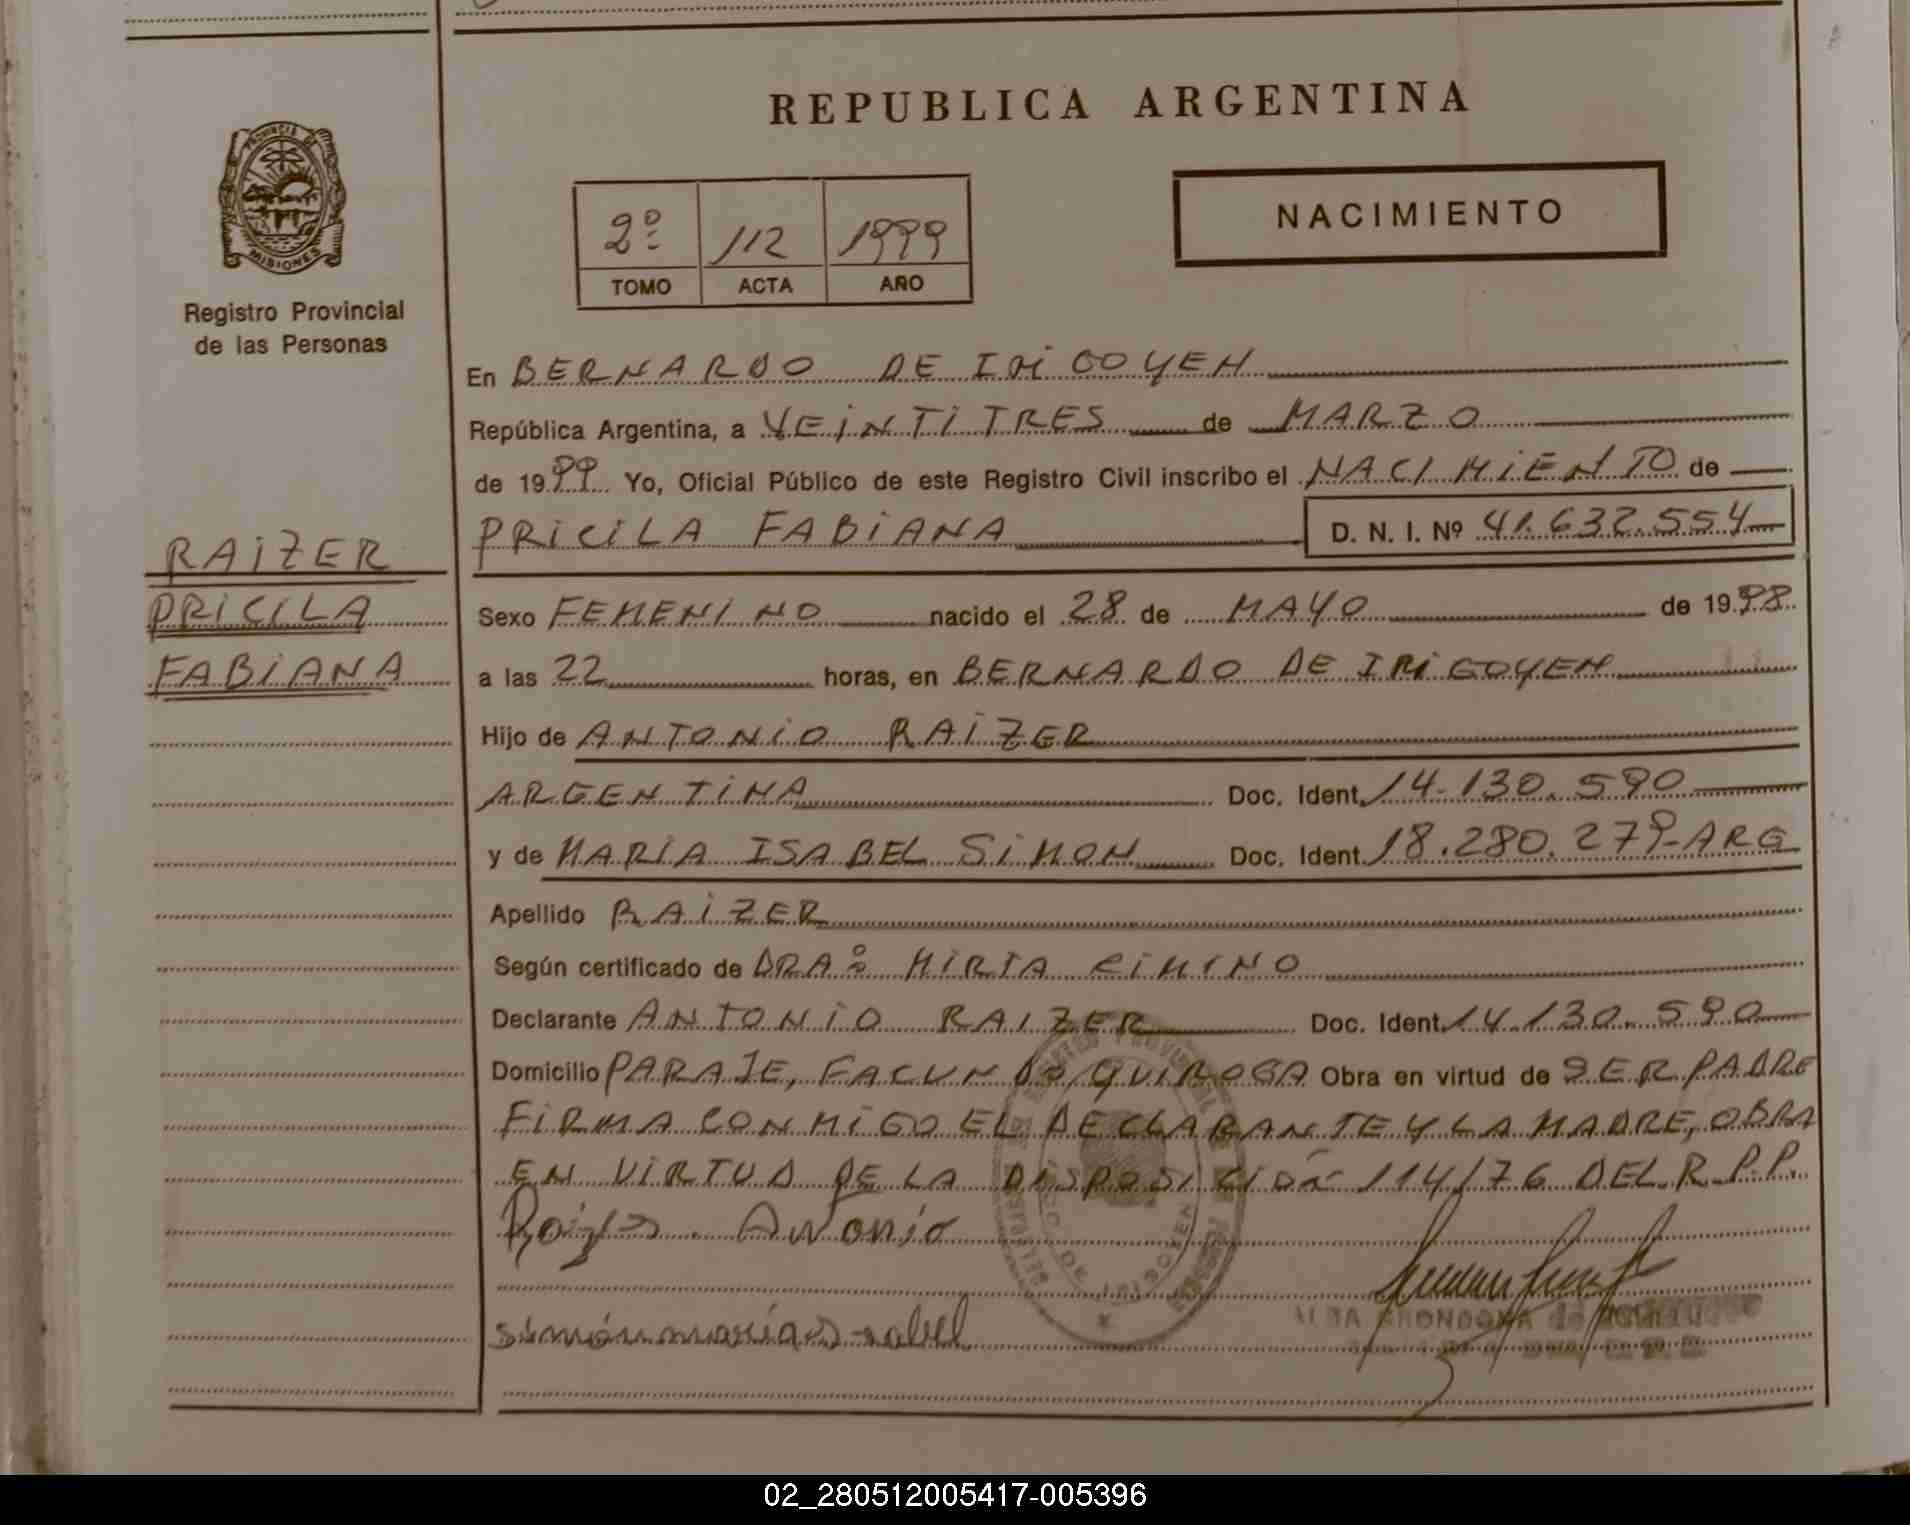 REPUBLICA ARGENTINA
PROVINCIA DE MISIONES
Registro Provincial
de las Personas
2º 112 1999
TOMO ACTA AÑO
NACIMIENTO
En BERNARDO DE IRIGOYEN
República Argentina, a VEINTITRES de MARZO
de 1999 Yo, Oficial Público de este Registro Civil inscribo el NACIMIENTO de
PRICILA FABIANA D. N. I. Nº 41.632.554
RAIZER
PRICILA
FABIANA
Sexo FEMENINO nacido el 28 de MAYO de 1998
a las 22 horas, en BERNARDO DE IRIGOYEN
Hijo de ANTONIO RAIZER
ARGENTINA Doc. Ident. 14.130.590
y de MARIA ISABEL SIMON Doc. Ident. 18.280.279-ARG
Apellido RAIZER
Según certificado de DRAº MIRTA CIMINO
Declarante ANTONIO RAIZER Doc. Ident. 14.130.590
Domicilio PARAJE, FACUNDO QUIROGA Obra en virtud de SER PADRE
FIRMA CONMIGO EL DECLARANTE Y LA MADRE, OBRA
EN VIRTUD DE LA DISPOSICIÓN 114/76 DEL R.P.P.
Raizer Antonio
simón maría isabel
02_280512005417-005396